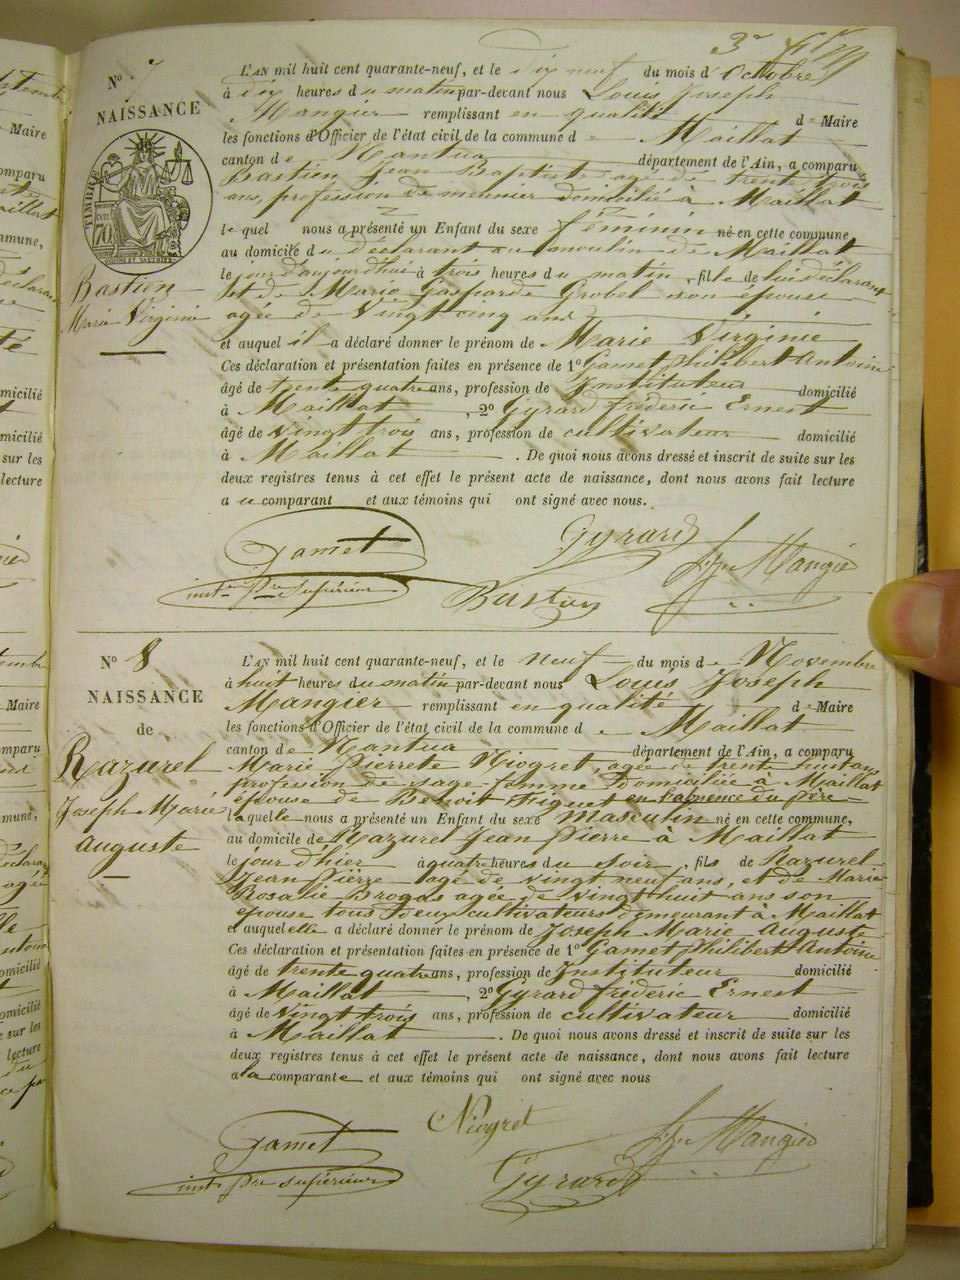 3e
N° 7
NAISSANCE
TIMBRE
70
Bastien
Marie Virginie
L'AN mil huit cent quarante-neuf, et le dix neuf du mois d'Octobre
à dix heures du matin par-devant nous Louis Joseph
Mangier remplissant en qualité de Maire
les fonctions d'Officier de l'état civil de la commune de Maillat
canton de Nantua département de l'Ain, a comparu
Bastien Jean Baptiste agé de trente trois
ans, profession de meunier domicilié à Maillat
lequel nous a présenté un Enfant du sexe féminin né en cette commune,
au domicile du déclarant au moulin de Maillat
le jour d'aujourd'hui à trois heures du matin, fille de lui déclarant
et de Marie Gasparde Grobel son épouse
agée de vingt cinq ans
et auquel il a déclaré donner le prénom de Marie Virginie
Ces déclaration et présentation faites en présence de 1° Gamet Philibert Antoine
âgé de trente quatre ans, profession de Instituteur domicilié
à Maillat, 2° Gyrard fréderic Ernest
âgé de vingt trois ans, profession de cultivateur domicilié
à Maillat. De quoi nous avons dressé et inscrit de suite sur les
deux registres tenus à cet effet le présent acte de naissance, dont nous avons fait lecture
au comparant et aux témoins qui ont signé avec nous.
Gamet
inst. pre supérieur
Gyrard
Bastien
Mangier
N° 8
NAISSANCE
de
Razurel
Joseph Marie
auguste
L'AN mil huit cent quarante-neuf, et le neuf du mois de Novembre
à huit heures du matin par-devant nous Louis Joseph
Mangier remplissant en qualité de Maire
les fonctions d'Officier de l'état civil de la commune de Maillat
canton de Nantua département de l'Ain, a comparu
Marie Pierrete Niogret, agée de trent huit ans
profession de sage-femme Domiciliée à Maillat
épouse de Benoit Figuet en l'absence du père
laquelle nous a présenté un Enfant du sexe masculin né en cette commune,
au domicile de Razurel Jean Pierre à Maillat
le jour d'hier à quatre heures du soir, fils de Razurel
Jean Pierre agé de vingt neuf ans, et de Marie
Rosalie Brogas agée de vingt huit ans son
épouse tous deux cultivateurs demeurant à Maillat
et auquel elle a déclaré donner le prénom de Joseph Marie Auguste
Ces déclaration et présentation faites en présence de 1° Gamet Philibert Antoine
âgé de trente quatre ans, profession de Instituteur domicilié
à Maillat, 2° Gyrard fréderic Ernest
âgé de vingt trois ans, profession de cultivateur domicilié
à Maillat. De quoi nous avons dressé et inscrit de suite sur les
deux registres tenus à cet effet le présent acte de naissance, dont nous avons fait lecture
a la comparante et aux témoins qui ont signé avec nous
Niogret
Gamet
inst. pre supérieur
Gyrard
Mangier